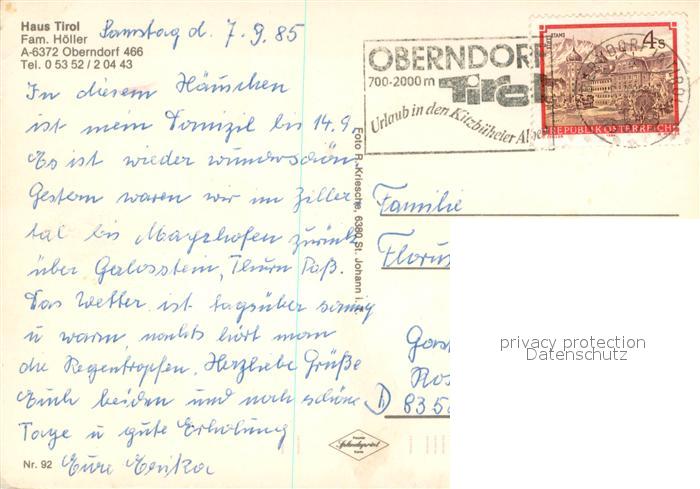 Haus Tirol
Fam. Höller
A-6372 Oberndorf 466
Tel. 0 53 52 / 2 04 43
Samstag d. 7.9.85
In diesem Häuschen
ist mein Domizil bis 14.9.
Es ist wieder wunderschön
Gestern waren wir im Ziller
tal bis Mayrhofen zurück
über Gerlosstein, Thurn Paß.
Das Wetter ist tagsüber sonnig
u warm, nachts hört man
die Regentropfen. Herzliebe Grüße
Euch beiden und noch schöne
Tage u gute Erholung
Eure Erika
Nr. 92
Foto R. Kriesche, 6380 St. Johann i.
OBERNDORF
700-2000 m Tirol
Urlaub in den Kitzbüheler Alpen
STAMS
4 S
REPUBLIK ÖSTERREICH
Familie
Florus
Gas
Ros
D 835
privacy protection
Datenschutz